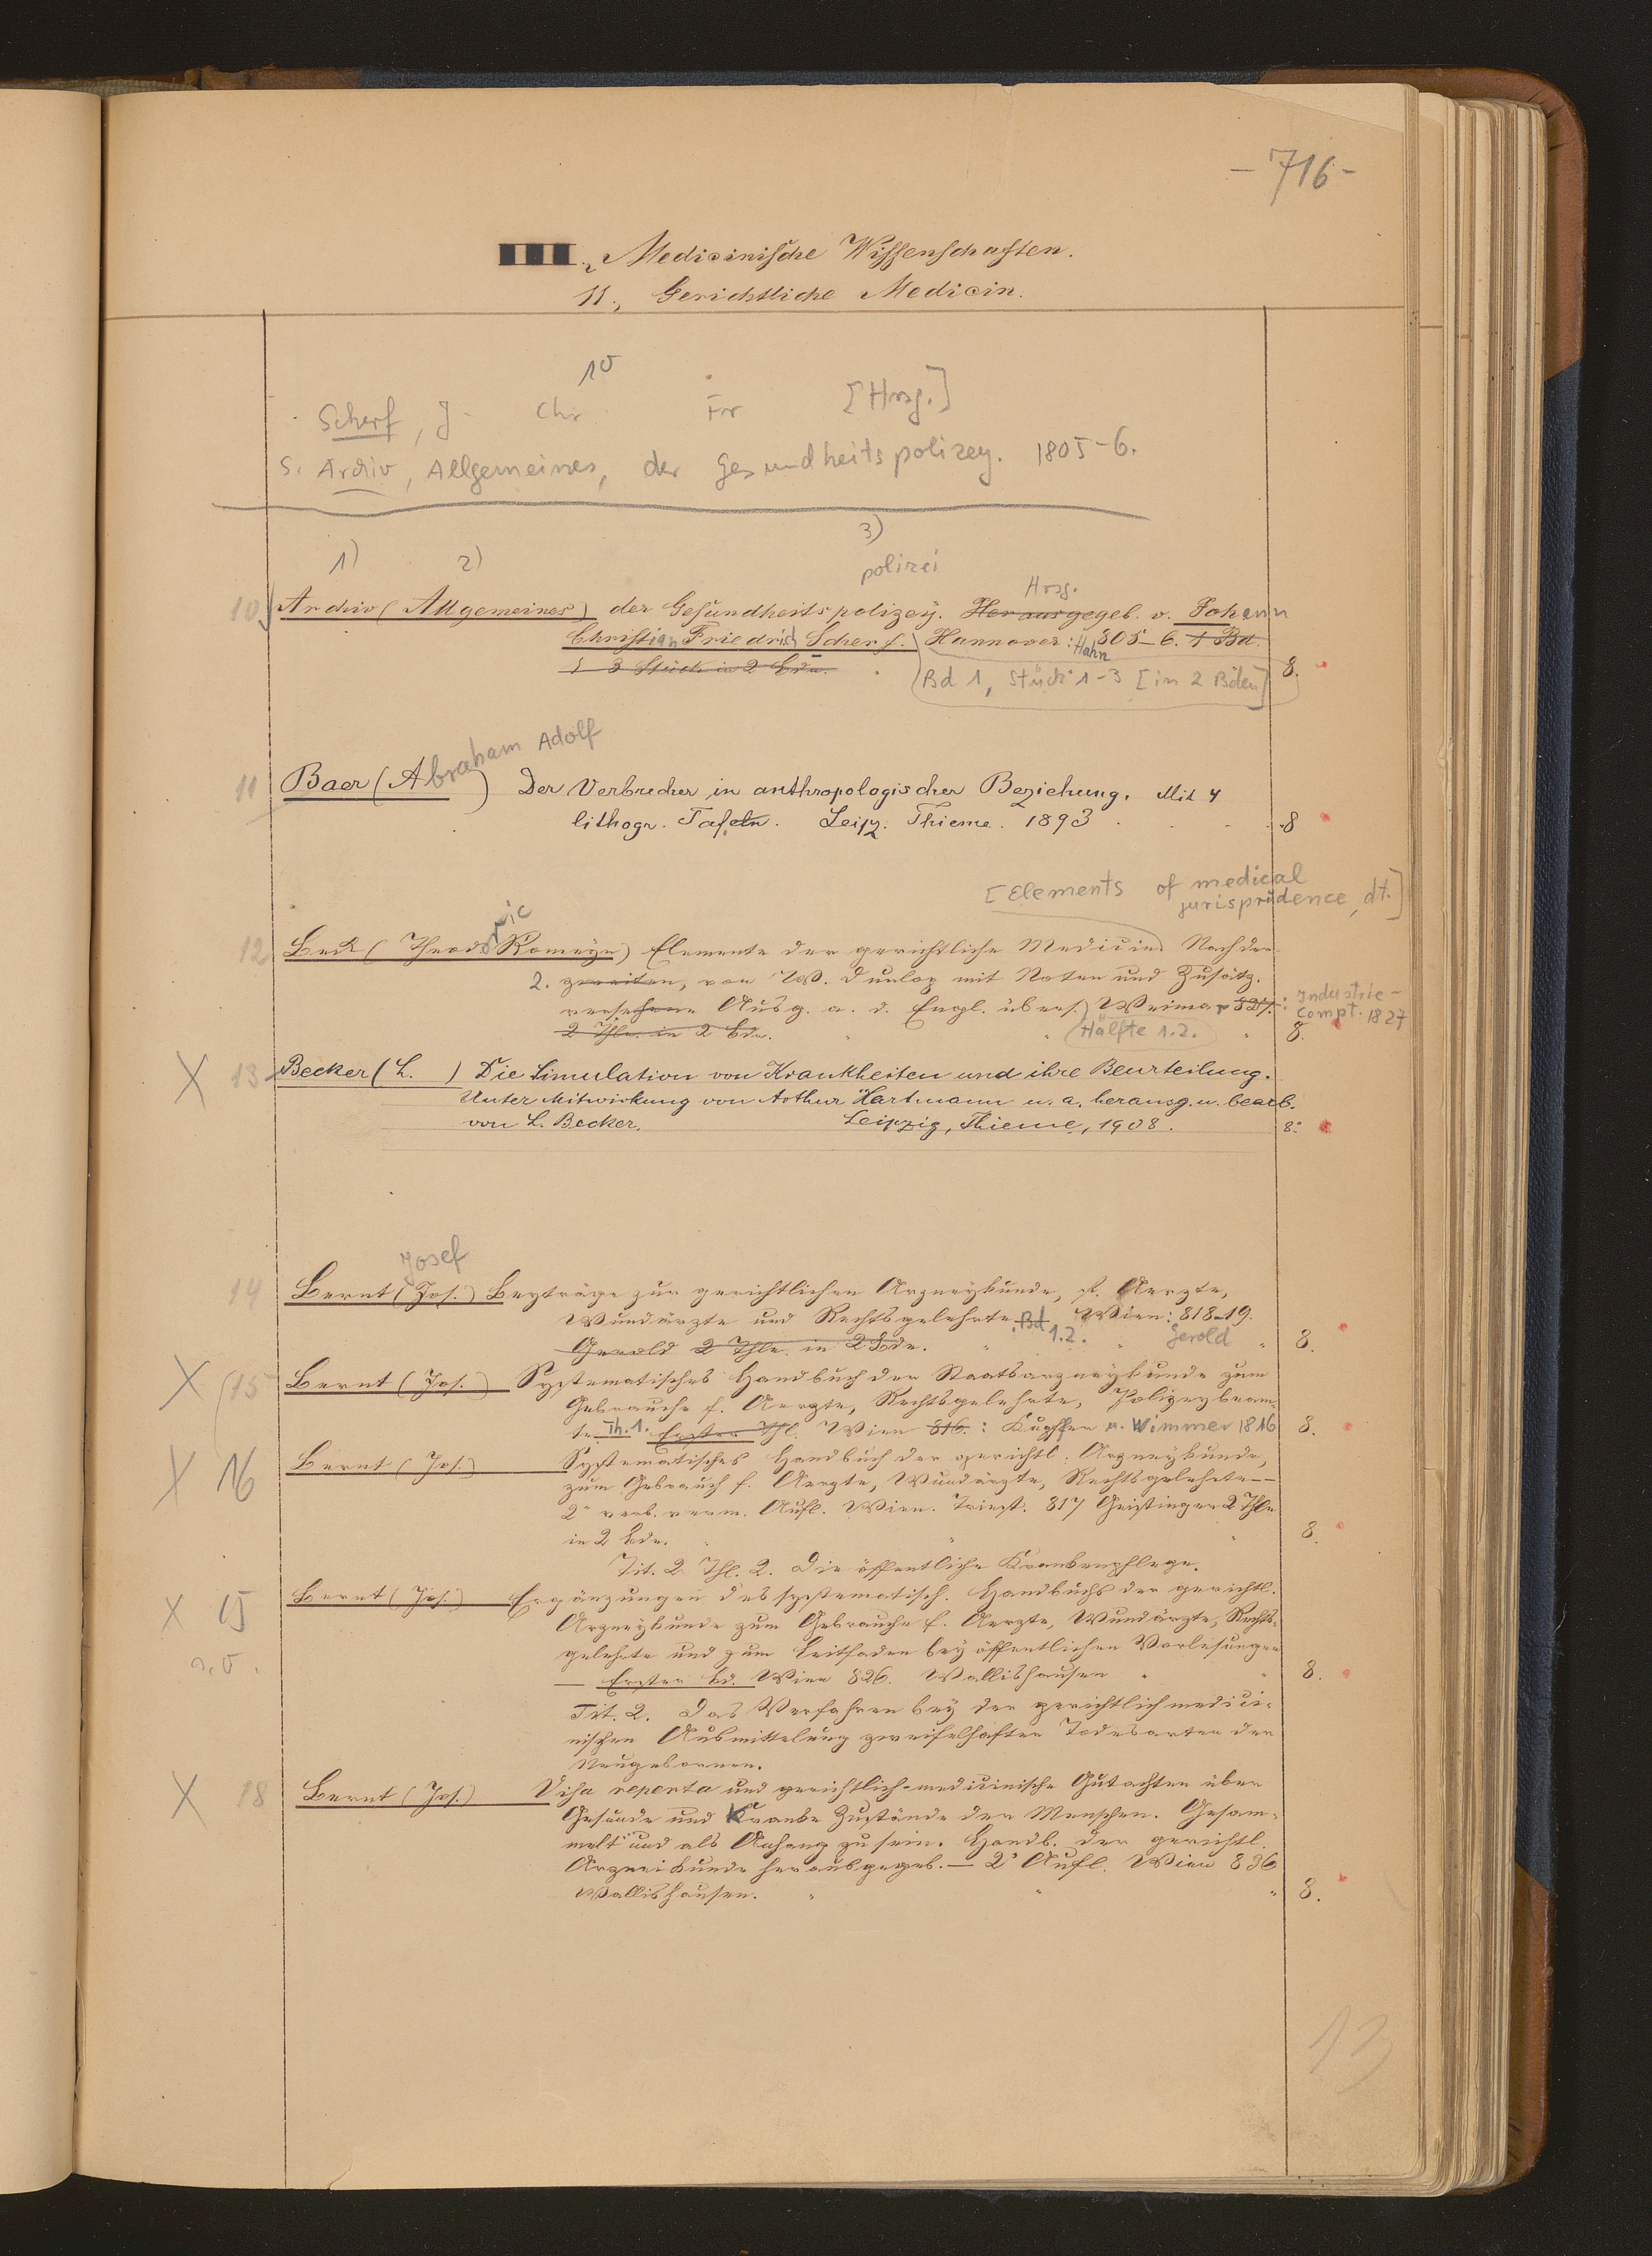 - 716 -
III., Medicinische Wissenschaften.
11., Gerichtliche Medicin.
10
Scherf, J. Chr Fr [Hrsg.]
s. Archiv, Allgemeines, der Gesundheitspolizey. 1805-6.
1) 2) 3)
polizei
Hrsg.
10 Archiv (Allgemeines) der Gesundheitspolizey. Herausgegeb. v. Johann
Christian Friedrich Scherf. Hannover: Hahn 805-6. 1 Bd.
1-3 Stück in 2 Bdn. 8.
Bd 1, Stück 1-3 [in 2 Bden]
11 Baer (Abraham Adolf) Der Verbrecher in anthropologischer Beziehung. Mit 4
lithogr. Tafeln. Leipz. Thieme. 1893 8
[Elements of medical
jurisprudence, dt.]
ric
12 Beck (Theodor Romeyn) Elemente der gerichtliche Medicin. Nach der
2. zweiten, von W. Dunlop mit Noten und Zusätz.
versehene Ausg. a. d. Engl. übers. Weimar 827. : Industrie-
Compt. 1827
2 Thle. in 2 Bdn. (Hälfte 1.2.) 8.
X 13 Becker (L. ) Die Simulation von Krankheiten und ihre Beurteilung.
Unter Mitwirkung von Arthur Hartmann u. a. herausg. u. bearb.
von L. Becker. Leipzig, Thieme, 1908. 8°
Josef
14 Bernt (Jos.) Beyträge zur gerichtlichen Arzneykunde, f. Aerzte,
Wundärzte und Rechtsgelehrte. Bd 1.2. Wien: 818-19.
Gerold 2 Thle. in 2 Bdn. Gerold 8.
X (15 Bernt (Jos.) Systematisches Handbuch der Staatsarzneykunde zum
Gebrauche f. Aerzte, Rechtsgelehrte, Polizeybeam-
te Th. 1. Erster Thl. Wien 816. : Kupffer u. Wimmer 1816 8.
X 16 Bernt (Jos.) Systematisches Handbuch der gerichtl. Arzneykunde,
zum Gebrauch f. Aerzte, Wundärzte, Rechtsgelehrte—
2e verb. verm. Aufl. Wien. Triest. 817 Geistinger 2 Thle
in 2 Bdn. 8.
Tit. 2 Thl. 2. Die öffentliche Krankenpflege.
X 15 Bernt (Jos.) Ergänzungen des systematisch. Handbuchs der gerichtl.
Arzneykunde zum Gebrauche f. Aerzte, Wundärzte, Rechts-
gelehrte und zum Leitfaden bey öffentlichen Vorlesungen
— Erster Bd. Wien 826. Wallishausen 8.
Tit. 2. Das Verfahren bey der gerichtlich medici-
nischen Ausmittelung zweifelhafter Todesarten der
Neugebornen.
X 18 Bernt (Jos.) Visa reperta und gerichtlich-medicinische Gutachten über
Gesunde und Kranke Zustände der Menschen. Gesam-
melt und als Anhang zu sein. Handb. der gerichtl.
Arzneikunde herausgegeb. — 2e Aufl. Wien 836
Wallishausen. 8.
13